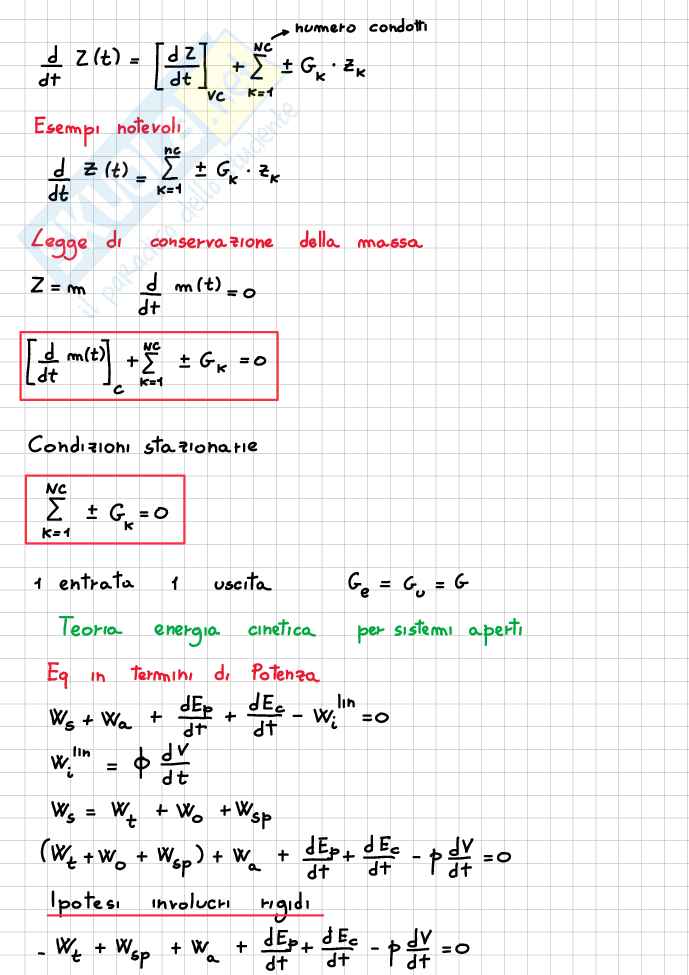 numero condotti
d/dt Z(t) = [dZ/dt]_VC + Σ_{K=1}^{NC} ± G_K · z_K
Esempi notevoli
d/dt Z(t) = Σ_{K=1}^{nc} ± G_K · z_K
Legge di conservazione della massa
Z = m d/dt m(t) = 0
[d/dt m(t)]_C + Σ_{K=1}^{NC} ± G_K = 0
Condizioni stazionarie
Σ_{K=1}^{NC} ± G_K = 0
1 entrata 1 uscita G_e = G_u = G
Teoria energia cinetica per sistemi aperti
Eq in termini di Potenza
W_s + W_a + dE_p/dt + dE_c/dt - W_i^lin = 0
W_i^lin = p dV/dt
W_s = W_t + W_o + W_sp
(W_t + W_o + W_sp) + W_a + dE_p/dt + dE_c/dt - p dV/dt = 0
Ipotesi involucri rigidi
- W_t + W_sp + W_a + dE_p/dt + dE_c/dt - p dV/dt = 0